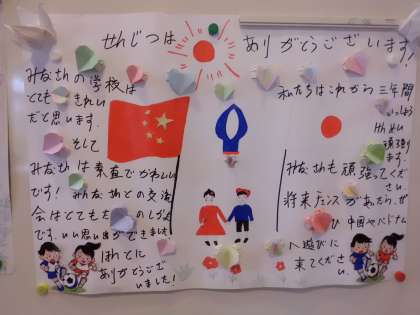 せんじつは ありがとうございます!
みなさんの学校は
とてもきれい
だと思います。
そして
みなさんは素直でかわいい
です! みなさまとの交流
会はとてもたのしかった
です。いい思い出ができました
ほんとに
ありがとうござ
いました!
私たちはこれから三年間
いっしょう
けんめい
頑張り
ます
みなさんも頑張ってくだ
さい。
将来チャンスがあったら、ぜ
ひ 中国やベトナム
へ遊びに
来てくださ
い。